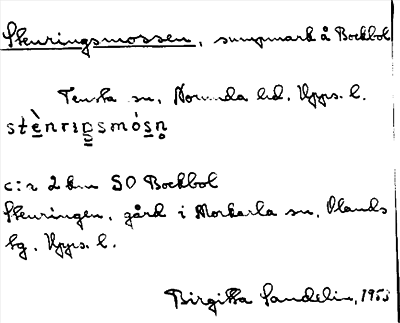 Stenringsmossen, sumpmark å Bockbol
Tensta sn, Norunda hd, Upps. l.
c:a 2 km SO Bockbol
Stenringen, gård i Morkarla sn, Olands
hg, Upps. l.
Birgitta Sandelin, 1953